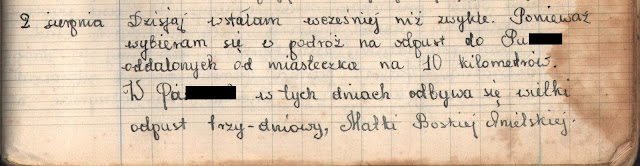 2 sierpnia Dzisjaj wstałam wcześniej niż zwykle. Ponieważ
wybieram się w podróż na odpust do Pu
oddalonych od miasteczka na 10 kilometrów.
W Pa w tych dniach odbywa się wielki
odpust trzy-dniowy, Matki Boskiej Anielskiej.